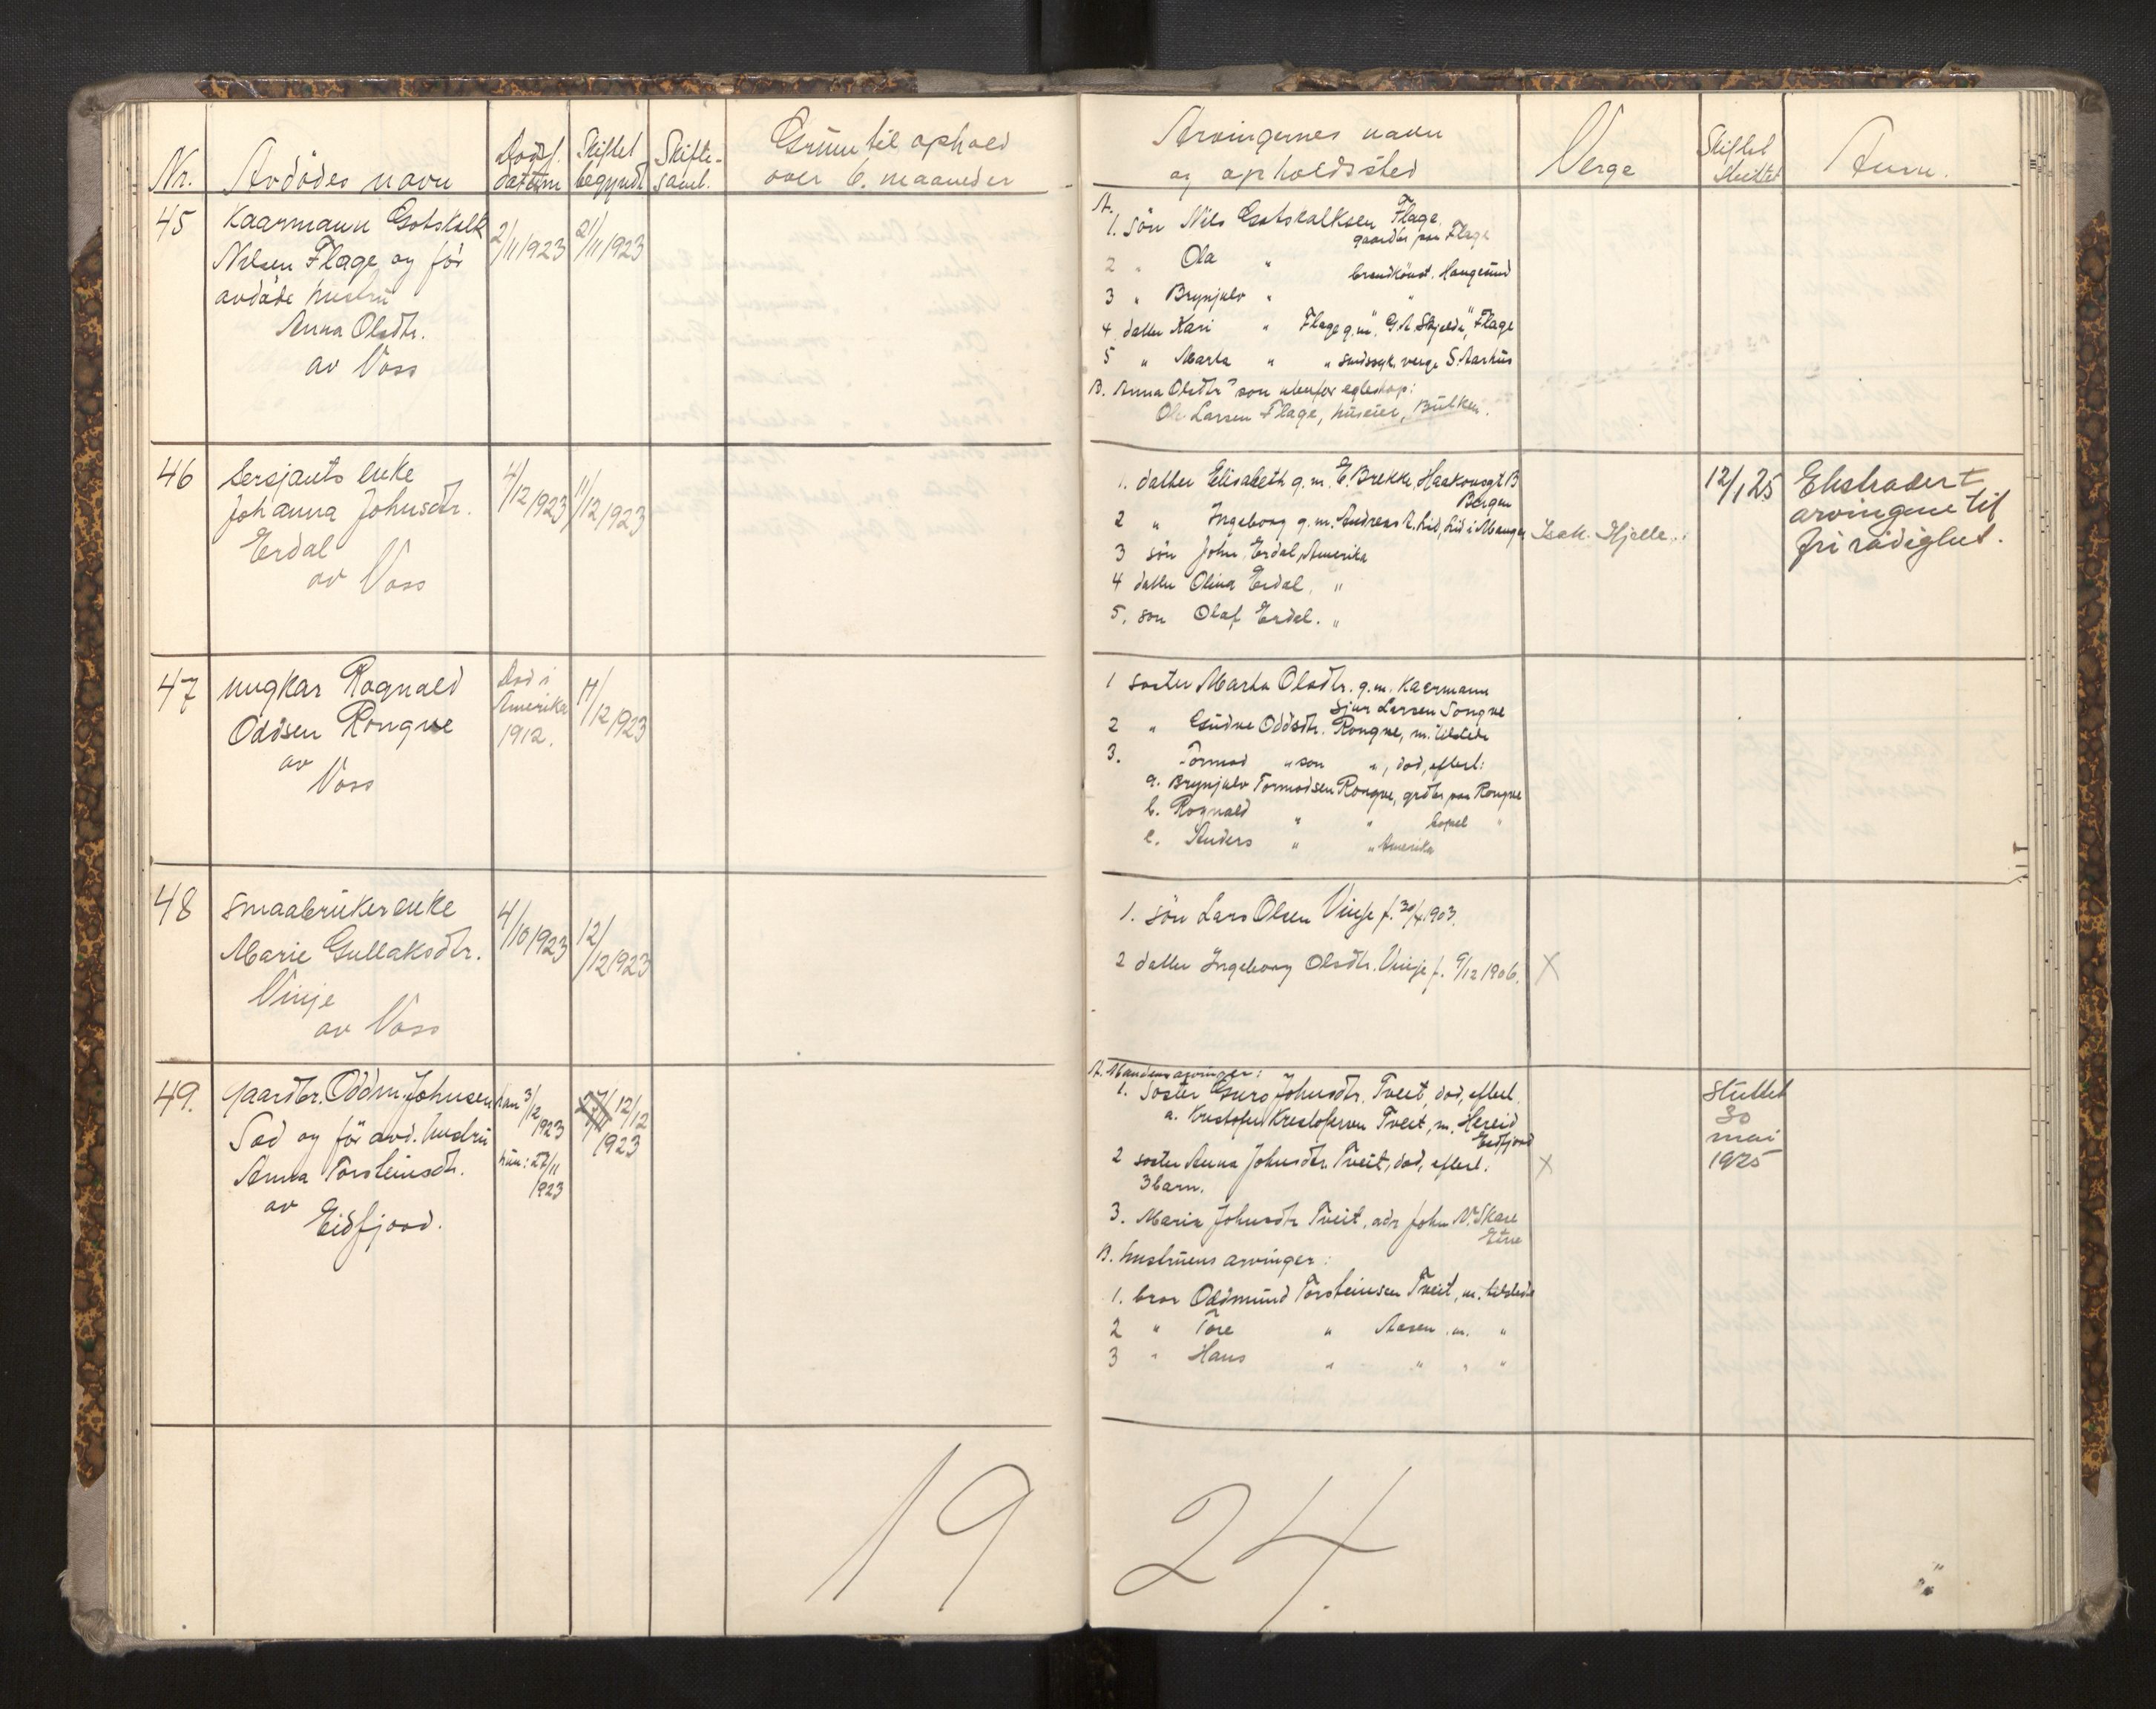 Nr.
Avdödes navn
Döds.
datum
Skiftet
begyndt
Skifte-
saml.
Grunn til ophold
over 6. maaneder
Arvingernes navn
og opholdssted
Verge
Skiftet
sluttet
Anm.
45
Kaarmann Gotskalk
Nilsen Flage og før
avdöde hustru
Anna Olsdtr.
av Voss
2/11/923
21/11/923
A.
1. sön Nils Gotskalksen Flage
gaardbr paa Flage
2 " Ola " brandkonst. Haugesund
3 " Brynjulv " "
4 datter Kari " Flage g.m. G. A. Skjelde, Flage
5 " Marta " " sindssyk. verge S. Aarhus
B. Anna Olsdtr's son utenfor egteskap:
Ole Larsen Flage, huseier, Bulken.
46
Sersjants enke
Johanna Johnsdtr.
Erdal
av Voss
4/12/923
11/12/923
1. datter Elisabeth g.m. E. Brekke, Haakonsgt B
Bergen
2 " Ingeborg g.m. Andreas A. Lid, Lid i Manger
3 sön John Erdal, Amerika
4 datter Olina Erdal. "
5. son Olaf Erdal. "
Isak Hjelle.
12/1 25
Ekstradert
arvingene til
fri rådighet.
47
ungkar Rognald
Oddsen Rongve
av
Voss
Död i
Amerika
1912.
11/12/923
1 soster Marta Olsdtr. g.m. Kaarmann
Sjur Larsen Songve
2 " Gudve Oddsdtr. Rongve, m. tilstede
3. Tormod " son ", dod, efterl:
a. Brynjulv Tormodsen Rongve, grdbr paa Rongve
b. Rognald " " bopæl "
c. Anders " " Amerika
48
Smaabrukerenke
Marie Gullaksdtr.
Vinje
av Voss
4/10/923
12/12/923
1. sön Lars Olsen Vinje f. 30/4 1903.
2 datter Ingeborg Olsdtr. Vinje f. 9/12 1906.
X
49.
Gaardbr. Oddm. Johnsen
Sæd og för avd. hustru
Anna Torsteinsdtr.
av
Eidfjord.
han 3/12
1923
hun: 27/11
1923
12/12
1923
A. Mandens arvinger:
1. Soster Guro Johnsdtr. Tveit, dod, efterl.
a. Kristofer Kristofersen Tveit, m. Hereid
Eidfjord
2 soster Anna Johnsdtr. Tveit, dod, efterl.
3 barn.
X
3. Maria Johnsdtr. Tveit, adr John N. Skare
Etne
B. hustruens arvinger:
1. bror Oddmund Torsteinsen Tveit, m. tilstede
2 " Tore " Aasen m. "
3 " Hans " " " "
Sluttet
30
mai
1925
19
24.